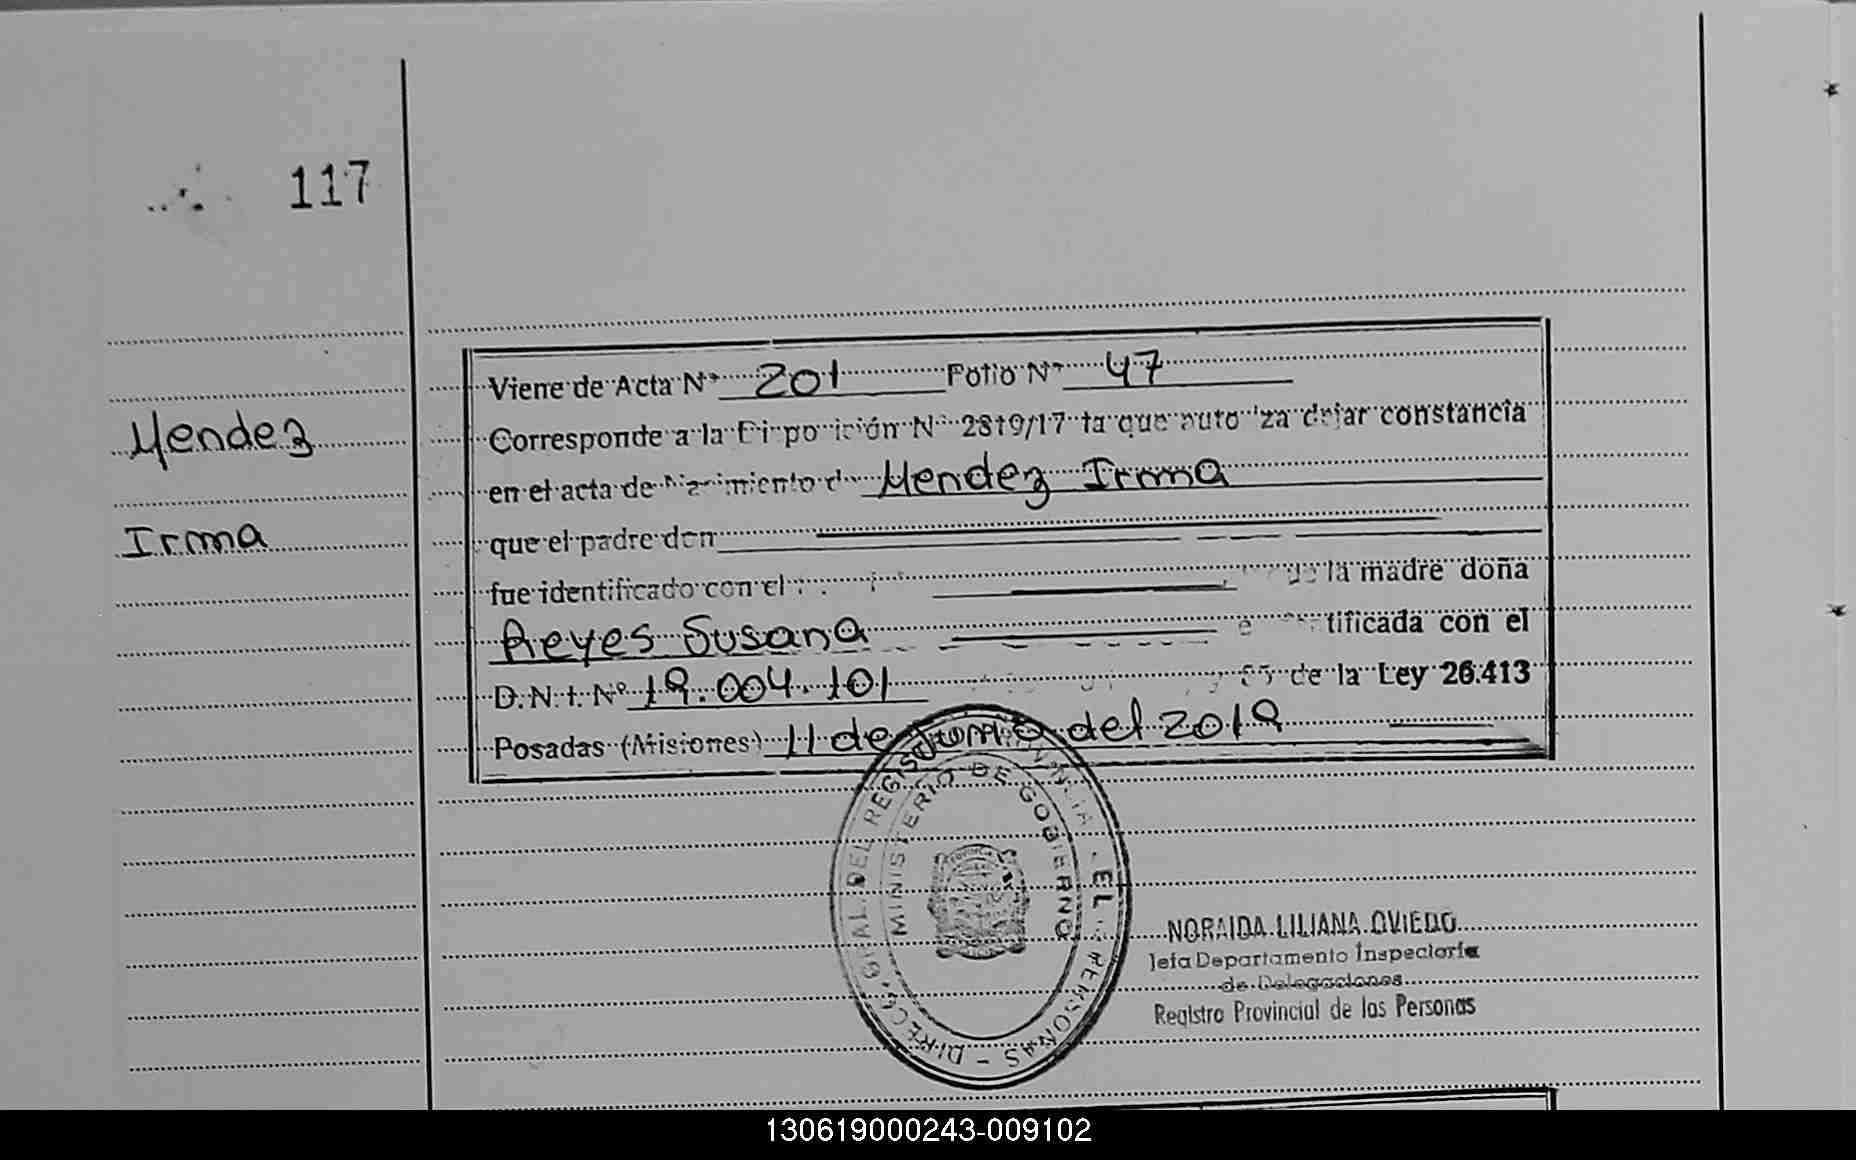 117
Viene de Acta Nº 201 Folio Nº 47
Mendez
Corresponde a la Disposición Nº 2819/17 la que autoriza dejar constancia
en el acta de Nacimiento de Mendez Irma
Irma
que el padre don
fue identificado con el
de la madre doña
Reyes Susana
tificada con el
D.N.I. Nº 19.004.101
de la Ley 26.413
Posadas (Misiones) 11 de Junio del 2019
MINISTERIO DE GOBIERNO
NORAIDA LILIANA OVIEDO
Jefa Departamento Inspectoría
de Delegaciones
Registro Provincial de las Personas
130619000243-009102